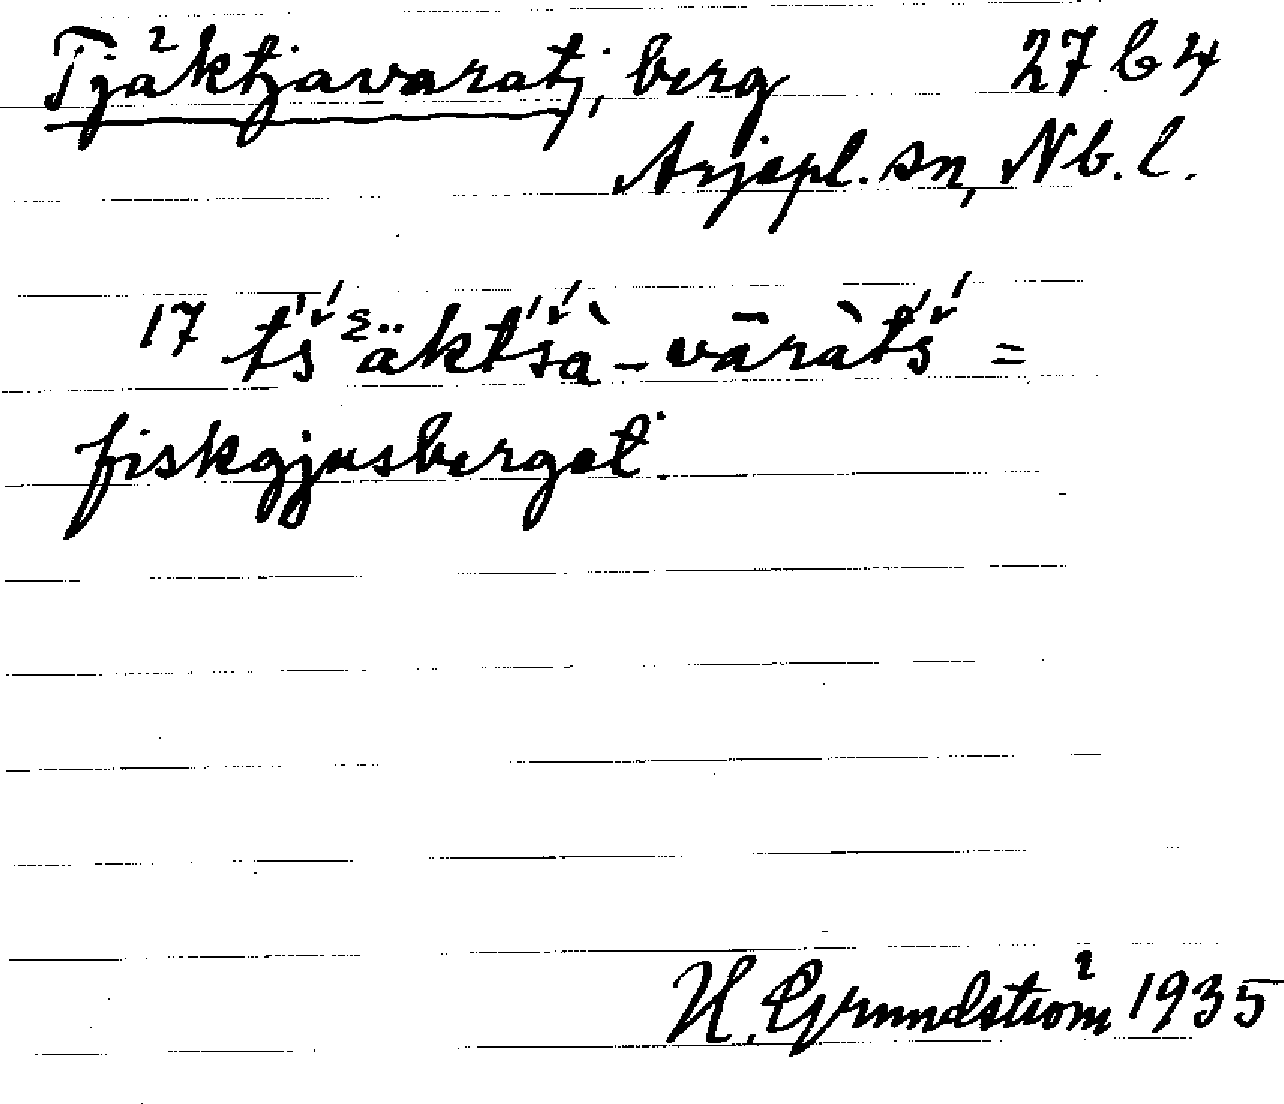 Tjäktjavaratj, berg 27 b 4
Arjepl. sn, Nb. l.
17 t́š́ äkt́š́à - vāràt́š́ =
fiskgjusberget.
H. Grundström 1935